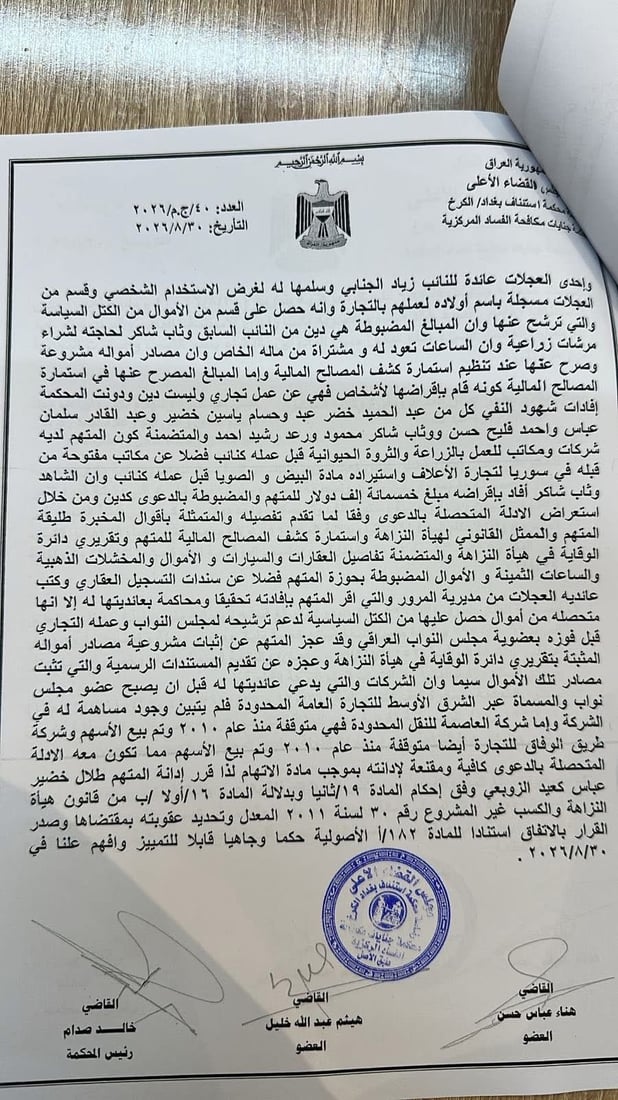 بسم الله الرحمن الرحيم
جمهورية العراق
مجلس القضاء الأعلى
محكمة استئناف بغداد/ الكرخ
جنايات مكافحة الفساد المركزية
العدد: ٤٠/ج.م/٢٠٢٦
التاريخ: ٢٠٢٦/٨/٣٠
وإحدى العجلات عائدة للنائب زياد الجنابي وسلمها له لغرض الاستخدام الشخصي وقسم من
العجلات مسجلة باسم أولاده لعملهم بالتجارة وانه حصل على قسم من الأموال من الكتل السياسة
والتي ترشح عنها وان المبالغ المضبوطة هي دين من النائب السابق وثاب شاكر لحاجته لشراء
مرشات زراعية وان الساعات تعود له و مشتراة من ماله الخاص وان مصادر أمواله مشروعة
وصرح عنها عند تنظيم استمارة كشف المصالح المالية وإما المبالغ المصرح عنها في استمارة
المصالح المالية كونه قام بإقراضها لأشخاص فهي عن عمل تجاري وليست دين ودونت المحكمة
إفادات شهود النفي كل من عبد الحميد خضر عبد وحسام ياسين خضير وعبد القادر سلمان
عباس واحمد فليح حسن ووثاب شاكر محمود ورعد رشيد احمد والمتضمنة كون المتهم لديه
شركات ومكاتب للعمل بالزراعة والثروة الحيوانية قبل عمله كنائب فضلا عن مكاتب مفتوحة من
قبله في سوريا لتجارة الأعلاف واستيراده مادة البيض و الصويا قبل عمله كنائب وان الشاهد
وثاب شاكر أفاد بإقراضه مبلغ خمسمائة إلف دولار للمتهم والمضبوطة بالدعوى كدين ومن خلال
استعراض الادلة المتحصلة بالدعوى وفقا لما تقدم تفصيله والمتمثلة بأقوال المخبرة طليقة
المتهم والممثل القانوني لهيأة النزاهة واستمارة كشف المصالح المالية للمتهم وتقريري دائرة
الوقاية في هيأة النزاهة والمتضمنة تفاصيل العقارات والسيارات و الأموال والمخشلات الذهبية
والساعات الثمينة و الأموال المضبوطة بحوزة المتهم فضلا عن سندات التسجيل العقاري وكتب
عائديه العجلات من مديرية المرور والتي اقر المتهم بإفادته تحقيقا ومحاكمة بعانديتها له إلا انها
متحصله من أموال حصل عليها من الكتل السياسية لدعم ترشيحه لمجلس النواب وعمله التجاري
قبل فوزه بعضوية مجلس النواب العراقي وقد عجز المتهم عن إثبات مشروعية مصادر أمواله
المثبتة بتقريري دائرة الوقاية في هيأة النزاهة وعجزه عن تقديم المستندات الرسمية والتي تثبت
مصادر تلك الأموال سيما وان الشركات والتي يدعي عائديتها له قبل ان يصبح عضو مجلس
نواب والمسماة عبر الشرق الأوسط للتجارة العامة المحدودة فلم يتبين وجود مساهمة له في
الشركة وإما شركة العاصمة للنقل المحدودة فهي متوقفة منذ عام ٢٠١٠ وتم بيع الأسهم وشركة
طريق الوفاق للتجارة أيضا متوقفة منذ عام ٢٠١٠ وتم بيع الأسهم مما تكون معه الادلة
المتحصلة بالدعوى كافية ومقنعة لإدانته بموجب مادة الاتهام لذا قرر إدانة المتهم طلال خضير
عباس كعيد الزوبعي وفق إحكام المادة ١٩/ثانيا وبدلالة المادة ١٦/أولا /ب من قانون هيأة
النزاهة والكسب غير المشروع رقم ٣٠ لسنة ٢٠١١ المعدل وتحديد عقوبته بمقتضاها وصدر
القرار بالاتفاق استنادا للمادة ١٨٢/أ الأصولية حكما وجاهيا قابلا للتمييز وافهم علنا في
٢٠٢٦/٨/٣٠ .
مجلس القضاء الأعلى
محكمة استئناف بغداد الكرخ
محكمة جنايات مكافحة
الفساد المركزية
طبق الأصل
القاضي
هناء عباس حسن
العضو
القاضي
هيثم عبد الله خليل
العضو
القاضي
خالد صدام
رئيس المحكمة